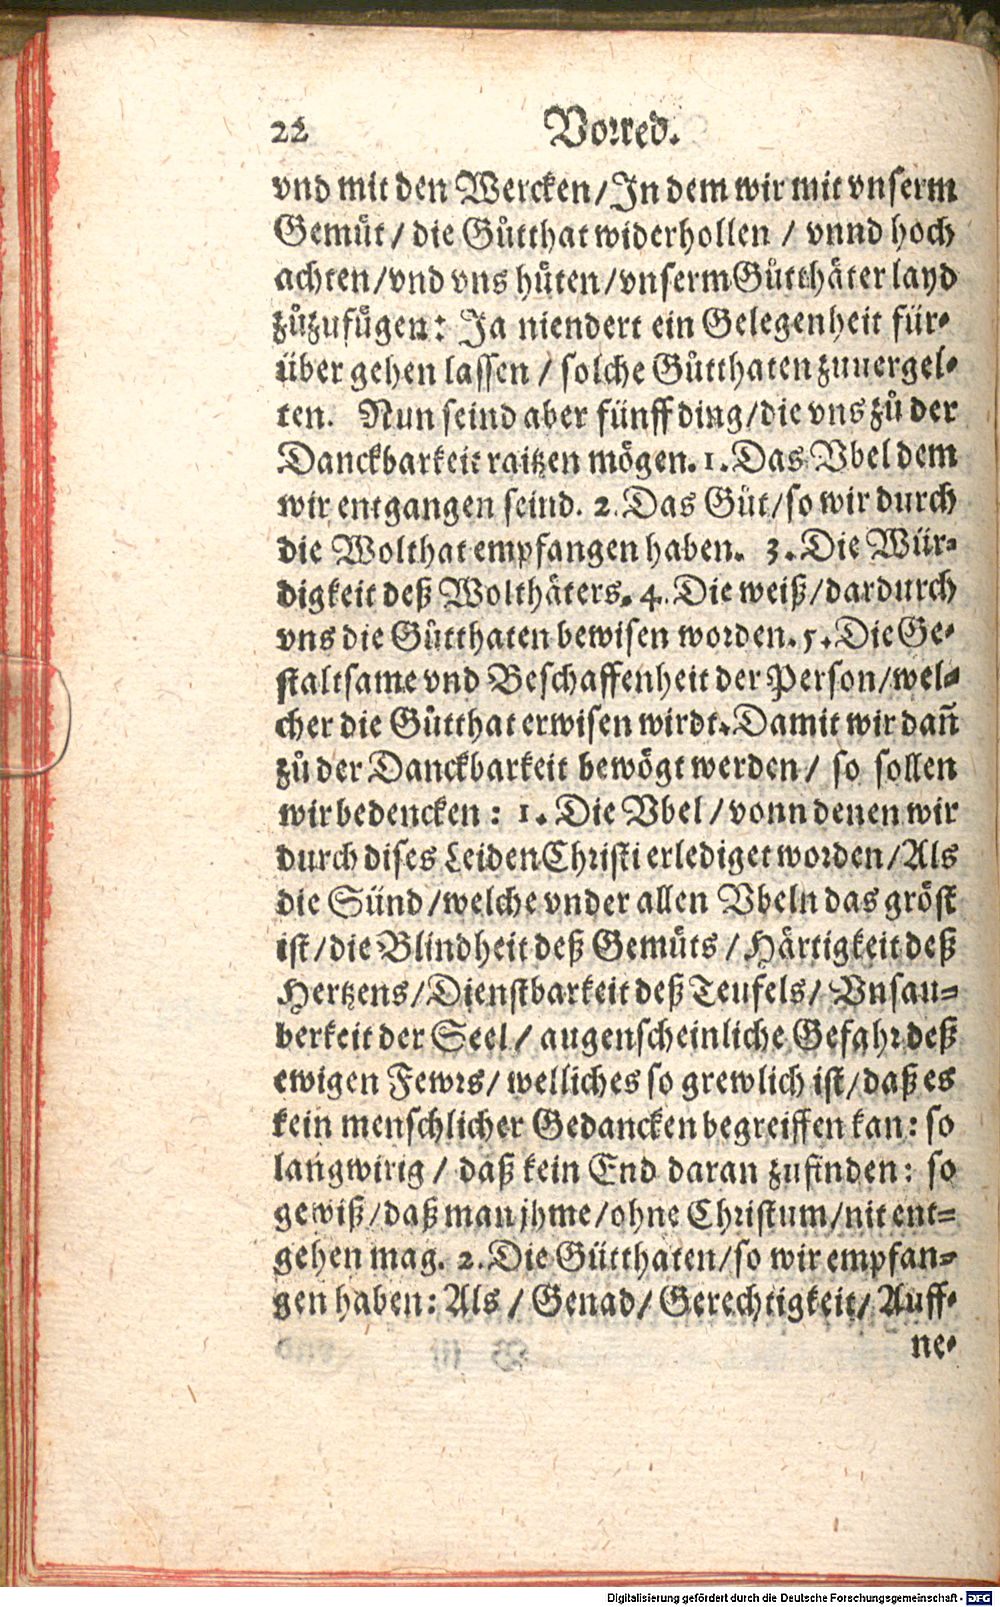 22 Vorred.
vnd mit den Wercken/ In dem wir mit vnserm
Gemüt/ die Gůtthat widerhollen / vnnd hoch
achten/ vnd vns hüten/ vnserm Gůtthäter layd
zůzufügen: Ja niendert ein Gelegenheit für-
über gehen lassen / solche Gůtthaten zuuergel-
ten. Nun seind aber fünff ding/ die vns zů der
Danckbarkeit raitzen mögen. 1. Das Vbel dem
wir entgangen seind. 2. Das Gůt/ so wir durch
die Wolthat empfangen haben. 3. Die Wür-
digkeit deß Wolthäters. 4. Die weiß/ dardurch
vns die Gůtthaten bewisen worden. 5. Die Ge-
staltsame vnd Beschaffenheit der Person/ wel-
cher die Gůtthat erwisen wirdt. Damit wir dañ
zů der Danckbarkeit bewögt werden/ so sollen
wir bedencken: 1. Die Vbel / vonn denen wir
durch dises Leiden Christi erlediget worden/ Als
die Sünd/ welche vnder allen Vbeln das gröst
ist/ die Blindheit deß Gemüts / Härtigkeit deß
Hertzens/ Dienstbarkeit deß Teufels/ Vnsau-
berkeit der Seel/ augenscheinliche Gefahr deß
ewigen Fewrs/ welliches so grewlich ist/ daß es
kein menschlicher Gedancken begreiffen kan: so
langwirig / daß kein End daran zufinden: so
gewiß/ daß man jhme/ ohne Christum/ nit ent-
gehen mag. 2. Die Gůtthaten/ so wir empfan-
gen haben: Als / Genad/ Gerechtigkeit/ Auff-
ne-
Digitalisierung gefördert durch die Deutsche Forschungsgemeinschaft - DFG